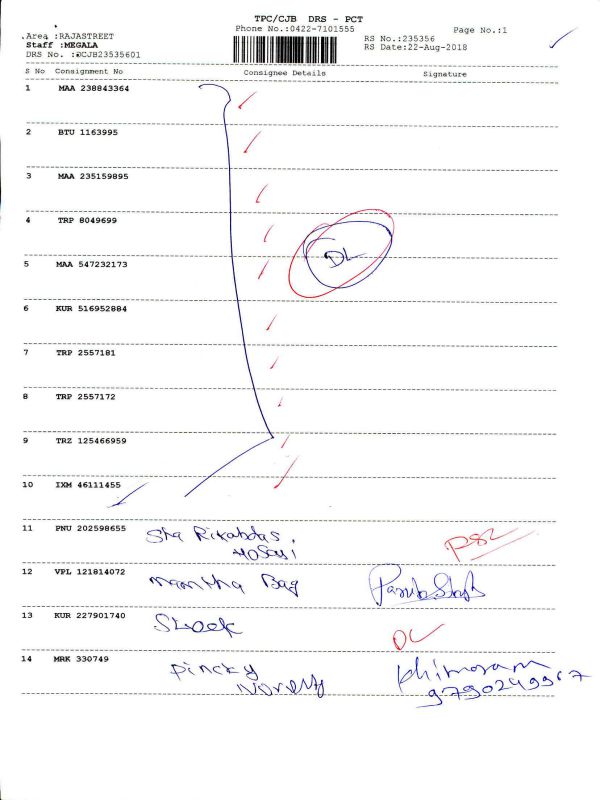 TPC/CJB DRS - PCT
Phone No.:0422-7101555
Page No.:1
Area :RAJASTREET
RS No.:235356
Staff :MEGALA
RS Date:22-Aug-2018
DRS No. :DCJB23535601
S No Consignment No Consignee Details Signature
1 MAA 238843364
2 BTU 1163995
3 MAA 235159895
4 TRP 8049699
DL
5 MAA 547232173
6 KUR 516952884
7 TRP 2557181
8 TRP 2557172
9 TRZ 125466959
10 IXM 46111455
11 PNU 202598655
12 VPL 121814072 Mamtha Bag
13 KUR 227901740
DL
14 MRK 330749 Pincky
Khimaram